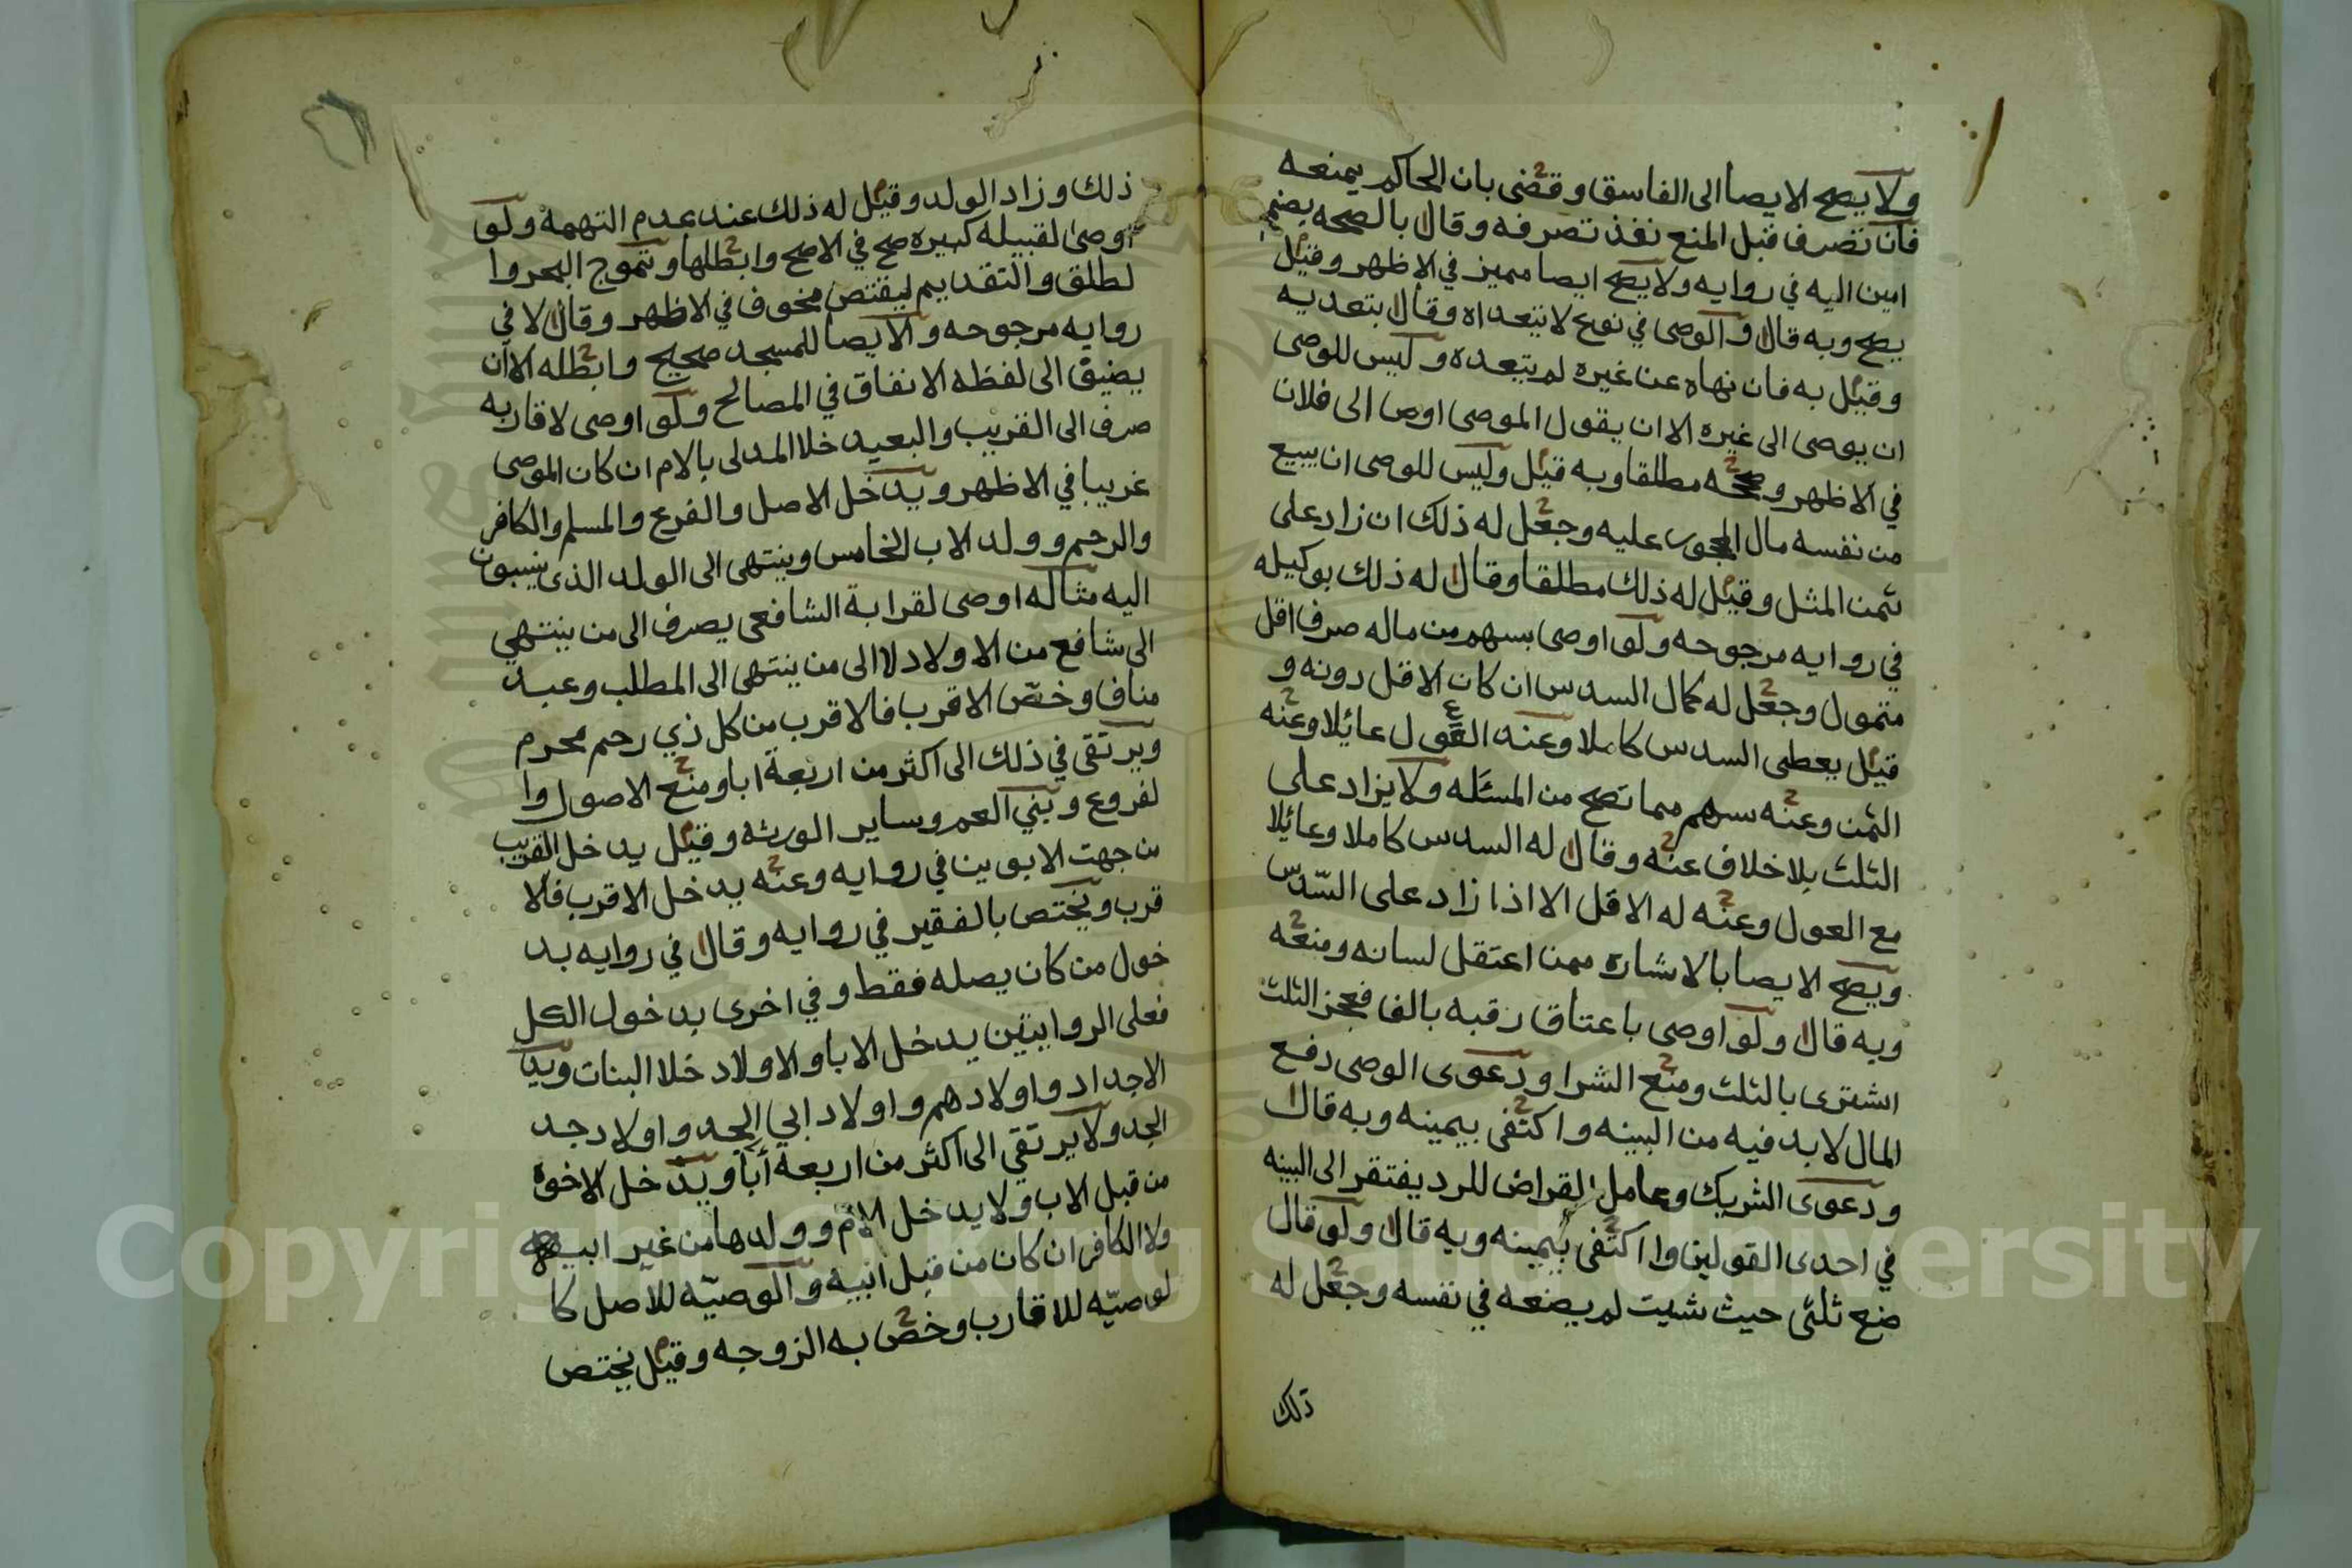 ولا يصح الايصا الى الفاسق وقضى بان الحاكم يمنعه
فان تصرف قبل المنع نفذ تصرفه وقال بالصحه بضم
امين اليه في روايه ولا يصح ايصا مميز في الاظهر وقيل
يصح وبه قال والوصى في نوع لا يتعداه وقال بتعديه
وقيل به فان نهاه عن غيره لم يتعده وليس للوصى
ان يوصى الى غيره الا ان يقول الموصى اوص الى فلان
في الاظهر وصححه مطلقا وبه قيل وليس للوصى ان يبيع
من نفسه مال المحجور عليه وجعل له ذلك ان زاد على
ثمن المثل وقيل له ذلك مطلقا وقال له ذلك بوكيله
في روايه مرجوحه ولو اوصى بسهم من ماله صرف اقل
متمول وجعل له كمال السدس ان كان الاقل دونه و
قيل يعطى السدس كاملا وعنه القول عائلا وعنه
الثمن وعنه سهم مما تصح من المسئله ولا يزاد على
الثلث بلا خلاف عنه وقال له السدس كاملا وعائلا
مع العول وعنه له الاقل الا اذا زاد على السّدس
ويصح الايصا بالاشاره ممن اعتقل لسانه ومنعه
وبه قال ولو اوصى باعتاق رقبه بالف فعجز الثلث
اشترى بالثلث ومنع الشرا ودعوى الوصى دفع
المال لا بد فيه من البينه واكتفى بيمينه وبه قال
ودعوى الشريك وعامل القراض للرد يفتقر الى البينه
في احدى القولين وا اكتفى بيمينه وبه قال ولو قال
ضع ثلثى حيث شيت لم يضعه في نفسه وجعل له
ذلك
ذلك وزاد الولد وقيل له ذلك عند عدم التهمة ولو
اوصى لقبيله كبيره صح في الاصح وابطلها وتموج البحر وا
لطلق والتقديم ليقتص مخوف في الاظهر وقال لا في
روايه مرجوحه والايصا للمسجد صحيح وابطله الا ان
يضيق الى لفظه الانفاق في المصالح ولو اوصى لاقاربه
صرف الى القريب والبعيد خلا المدلى بالام ان كان الموصى
غريبا في الاظهر ويدخل الاصل والفرع والمسلم والكافر
والرحم وولد الاب الخامس وينتهى الى الولد الذى ينسبون
اليه مثاله اوصى لقرابة الشافعى يصرف الى من ينتهي
الى شافع من الاولاد لا الى من ينتهى الى المطلب وعبد
مناف وخصّ الاقرب فالاقرب من كل ذي رحم محرم
ويرتقى في ذلك الى اكثر من اربعة ابا ومنع الاصول وا
لفروع وبني العم وساير الورثه وقيل يدخل القريب
من جهت الابوين في روايه وعنه يدخل الاقرب فالا
قرب ويختص بالفقير في روايه وقال في روايه بد
خول من كان يصله فقط وفي اخرى بدخول الكل
فعلى الروايتين يدخل الابا والاولاد خلا البنات ويد
الاجداد واولادهم واولاد ابي الجد واولاد جد
الجد ولا يرتقي الى اكثر من اربعة أبا ويدخل الاخوه
من قبل الاب ولا يدخل الام وولدها من غير ابيه
ولا الكافر ان كان من قبل ابيه والوصيّه للاصل كا
لوصيّه للاقارب وخص به الزوجه وقيل يختص